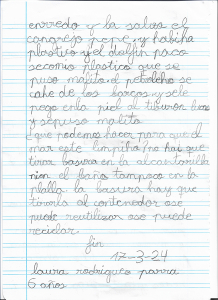 enrredo y la salvas el
cangrejo pepe y habiha
plastivo y el dalfin paco
secomio plastico que se
puso malito el petroleo se
cahe de los barcos y sele
pega enla piel al tiburon
y sepuso malito
que podemos hacer para que el
mar este limpiha no hai que
tirar basura en la alcantarilla
nien el baño tampoco en la
plalla la basura hay que
tirarla al contenedor ose
puede reutilizar ose puede
reciclar
fin
17-3-24
laura rodriguez parra
6 años